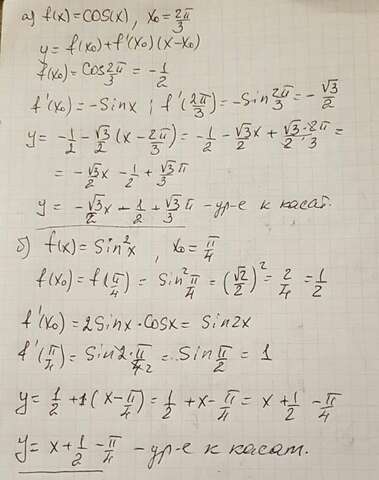 а) f(x)=cos(x), x₀=2π/3
y=f(x₀)+f'(x₀)(x-x₀)
f(x₀)=cos 2π/3 = -1/2
f'(x₀)=-Sinx; f'(2π/3)=-Sin 2π/3=-√3/2
y=-1/2-√3/2(x-2π/3)=-1/2-√3/2x+√3·2π/2·3=
=-√3/2x-1/2+√3/3π
y=-√3/2x-1/2+√3/3π -ур-е к касат.
б) f(x)=Sin²x, x₀=π/4
f(x₀)=f(π/4)=Sin²π/4=(√2/2)²=2/4=1/2
f'(x₀)=2Sinx·Cosx=Sin2x
f'(π/4)=Sin2·π/4₂=Sinπ/2=1
y=1/2+1(x-π/4)=1/2+x-π/4=x+1/2-π/4
y=x+1/2-π/4 -ур-е к касат.